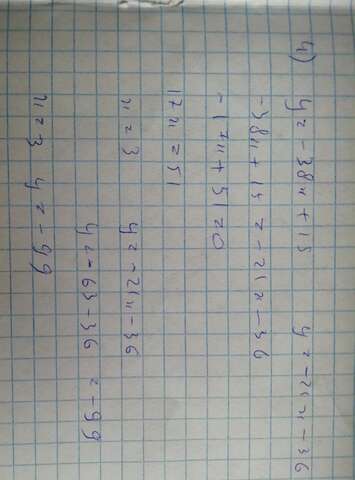 4) y = -38x + 15 y = -21x - 36
-38x + 15 = -21x - 36
-17x + 51 = 0
17x = 51
x = 3 y = -21x - 36
y = -63 - 36 = -99
x = 3 y = -99